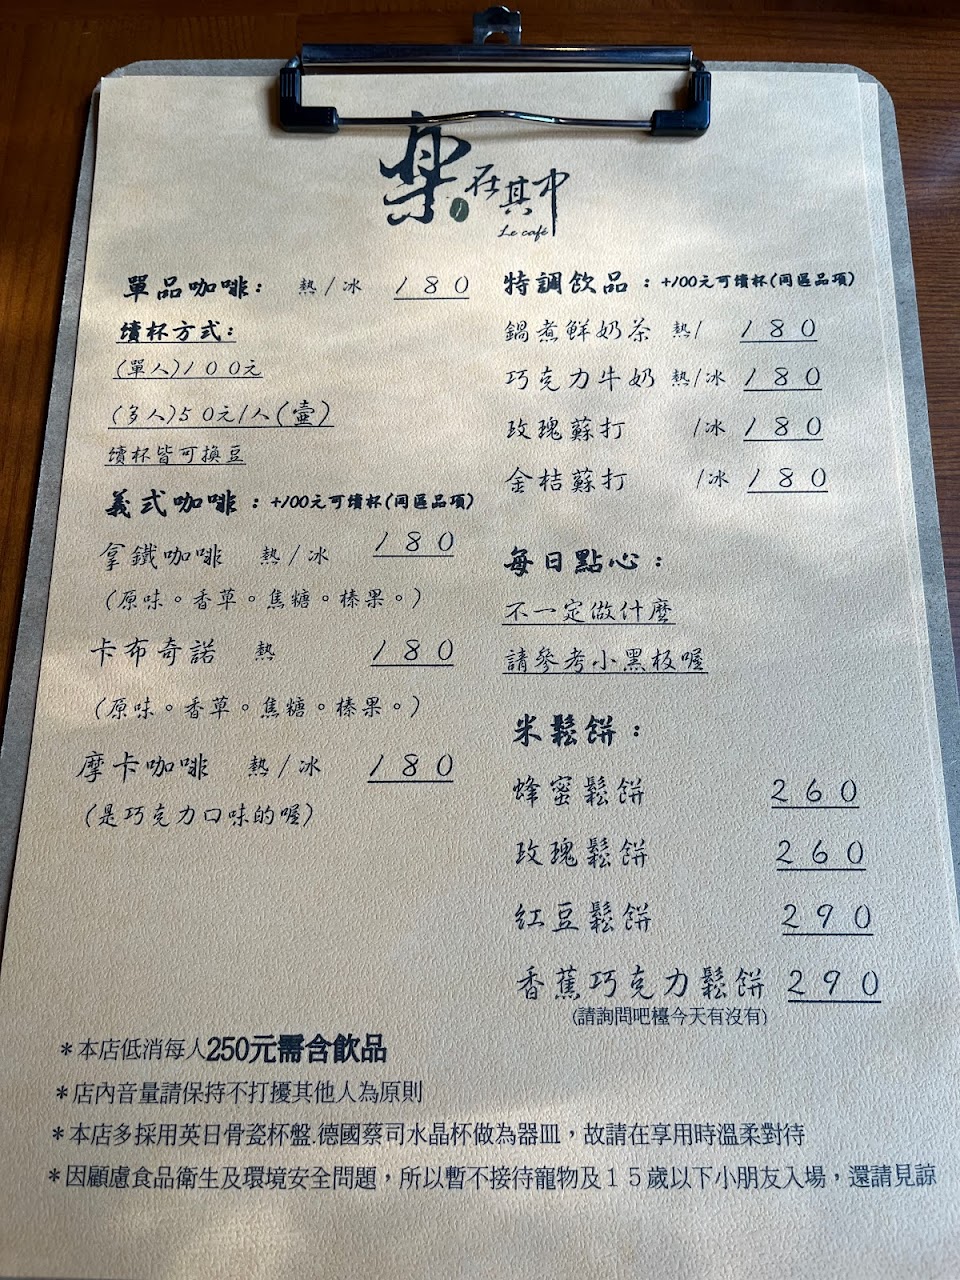 樂在其中
Le café
單品咖啡: 熱/冰 180
續杯方式:
(單人)100元
(多人)50元/人(壺)
續杯皆可換豆
義式咖啡:+100元可續杯(同區品項)
拿鐵咖啡 熱/冰 180
(原味。香草。焦糖。榛果。)
卡布奇諾 熱 180
(原味。香草。焦糖。榛果。)
摩卡咖啡 熱/冰 180
(是巧克力口味的喔)
特調飲品:+100元可續杯(同區品項)
鍋煮鮮奶茶 熱/ 180
巧克力牛奶 熱/冰 180
玫瑰蘇打 /冰 180
金桔蘇打 /冰 180
每日點心:
不一定做什麼
請參考小黑板喔
米鬆餅:
蜂蜜鬆餅 260
玫瑰鬆餅 260
紅豆鬆餅 290
香蕉巧克力鬆餅 290
(請詢問吧檯今天有沒有)
*本店低消每人250元需含飲品
*店內音量請保持不打擾其他人為原則
*本店多採用英日骨瓷杯盤.德國蔡司水晶杯做為器皿,故請在享用時溫柔對待
*因顧慮食品衛生及環境安全問題,所以暫不接待寵物及15歲以下小朋友入場,還請見諒